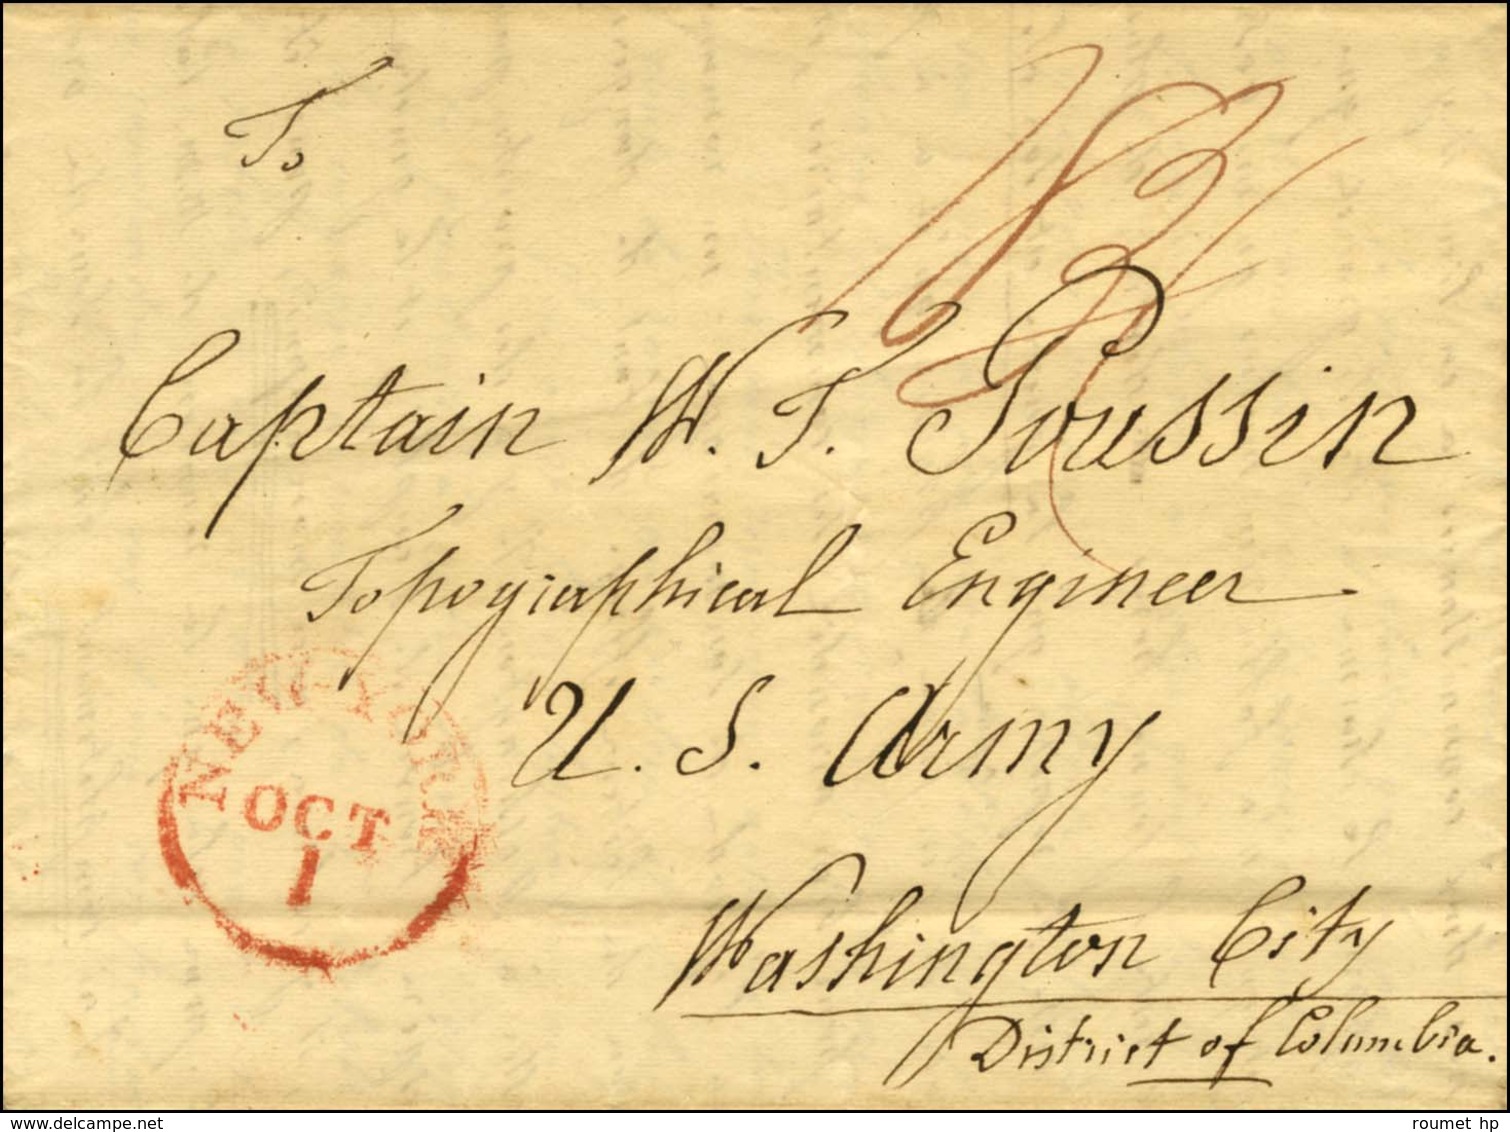 To
Captain W. T. Poussin
Topographical Engineer
U. S. Army
NEW-YORK
OCT
1
Washington City
District of Columbia.
delcampe.net
roumet hp